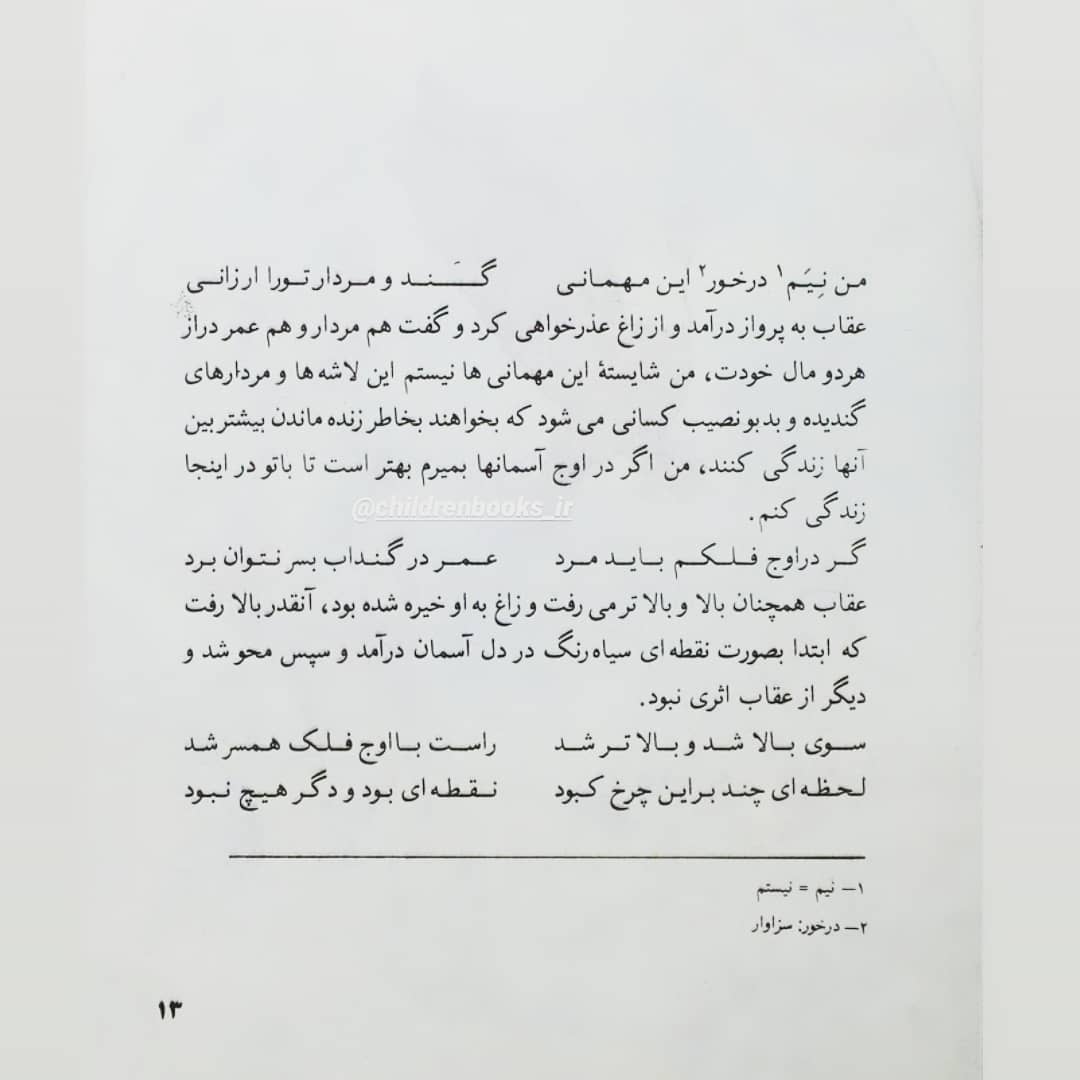 من نِیَم۱ درخور۲ این مهمانی گَند و مردار تورا ارزانی
عقاب به پرواز درآمد و از زاغ عذرخواهی کرد و گفت هم مردار و هم عمر دراز
هردو مال خودت، من شایستهٔ این مهمانی ها نیستم این لاشه ها و مردارهای
گندیده و بدبو نصیب کسانی می شود که بخواهند بخاطر زنده ماندن بیشتر بین
آنها زندگی کنند، من اگر در اوج آسمانها بمیرم بهتر است تا باتو در اینجا
زندگی کنم.
@childrenbooks_ir
گر دراوج فلکم باید مرد عمر در گنداب بسر نتوان برد
عقاب همچنان بالا و بالا تر می رفت و زاغ به او خیره شده بود، آنقدر بالا رفت
که ابتدا بصورت نقطه ای سیاه رنگ در دل آسمان درآمد و سپس محو شد و
دیگر از عقاب اثری نبود.
سوی بالا شد و بالا تر شد راست با اوج فلک همسر شد
لحظه ای چند براین چرخ کبود نقطه ای بود و دگر هیچ نبود
۱— نیم = نیستم
۲— درخور: سزاوار
۱۳